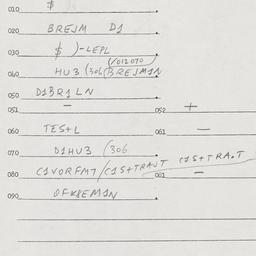 010 $
020 BREJM D1
030 $ )-LEPL
(/012070
040 HU3 (306 BREJM1N
050 D1BR1LN
051 — 052 +
060 TES+L 061 —
070 D1HU3 (306
080 C1VORFM7/C1S+TRAUT C1S+TRA.T
081 —
090 OFKREM1N